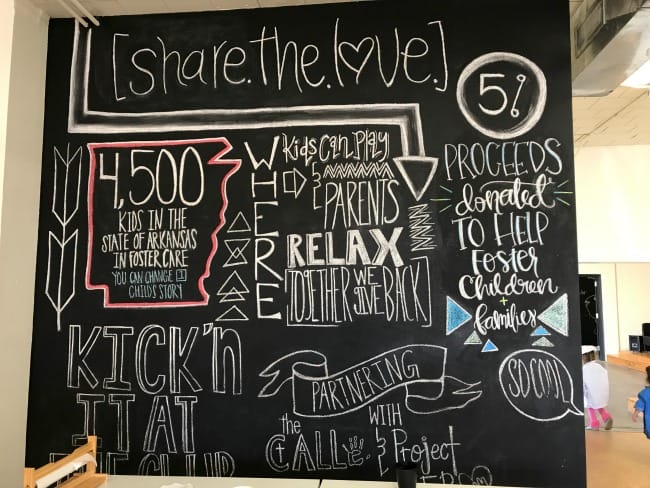 [share.the.love.]
4,500
KIDS IN THE
STATE OF ARKANSAS
IN FOSTER CARE
YOU CAN CHANGE 1
CHILD'S STORY
WHERE
kids can play
&
PARENTS
RELAX
TOGETHER WE GIVE BACK
5%
PROCEEDS
donated
TO HELP
FOSTER
Children
+
families
SO COOL
KICK'n
IT AT
THE CLUB
PARTNERING
WITH
the
CALL & Project